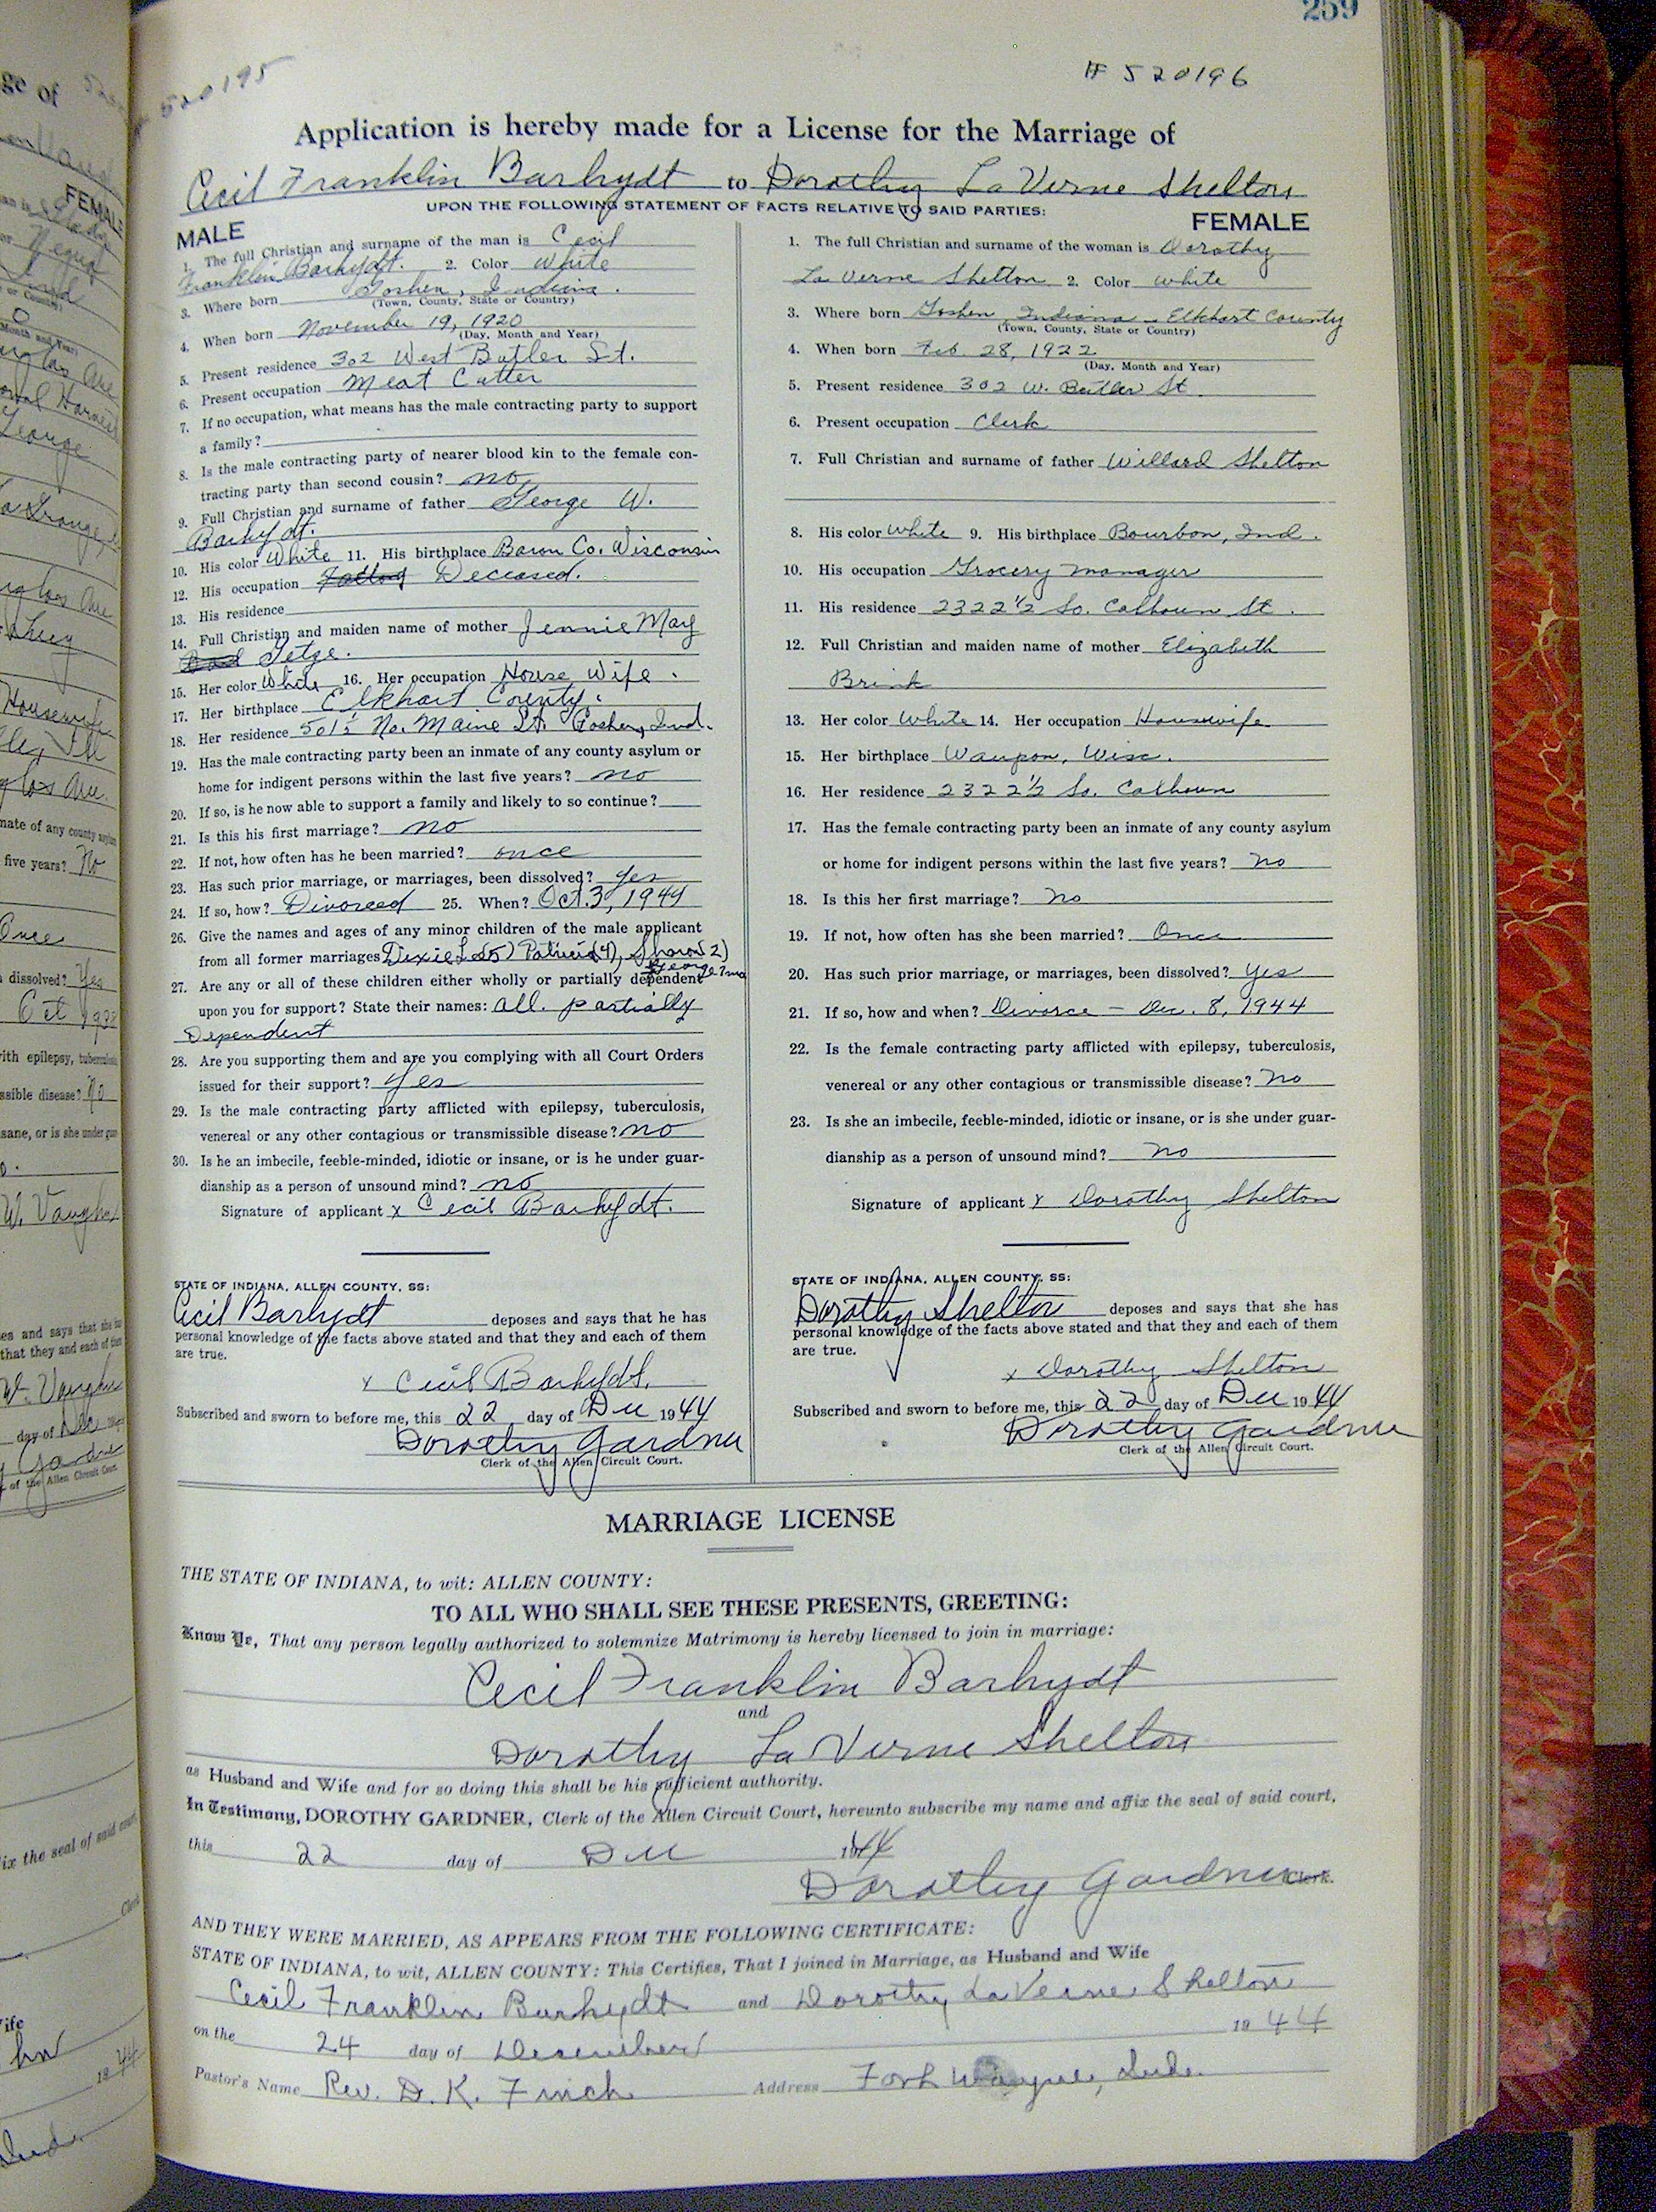 259
# 520196
520195
Application is hereby made for a License for the Marriage of
Cecil Franklin Barhydt to Dorothy La Verne Shelton
UPON THE FOLLOWING STATEMENT OF FACTS RELATIVE TO SAID PARTIES:
MALE
1. The full Christian and surname of the man is Cecil
Franklin Barhydt. 2. Color White
3. Where born Goshen, Indiana.
(Town, County, State or Country)
4. When born November 19, 1920
(Day, Month and Year)
5. Present residence 302 West Butler St.
6. Present occupation Meat Cutter
7. If no occupation, what means has the male contracting party to support
a family?
8. Is the male contracting party of nearer blood kin to the female con-
tracting party than second cousin? no
9. Full Christian and surname of father George W.
Barhydt.
10. His color White 11. His birthplace Baron Co. Wisconsin
12. His occupation Deceased.
13. His residence
14. Full Christian and maiden name of mother Jennie May
Getze.
15. Her color White 16. Her occupation House Wife.
17. Her birthplace Elkhart County.
18. Her residence 501½ No. Maine St. Goshen, Ind.
19. Has the male contracting party been an inmate of any county asylum or
home for indigent persons within the last five years? no
20. If so, is he now able to support a family and likely to so continue?
21. Is this his first marriage? no
22. If not, how often has he been married? once
23. Has such prior marriage, or marriages, been dissolved? yes
24. If so, how? Divorced 25. When? Oct. 3, 1944
26. Give the names and ages of any minor children of the male applicant
from all former marriages Dixie L (5) Patricia (4), Sharon 2)
George 7 mo
27. Are any or all of these children either wholly or partially dependent
upon you for support? State their names: all. partially
Dependent
28. Are you supporting them and are you complying with all Court Orders
issued for their support? yes
29. Is the male contracting party afflicted with epilepsy, tuberculosis,
venereal or any other contagious or transmissible disease? no
30. Is he an imbecile, feeble-minded, idiotic or insane, or is he under guar-
dianship as a person of unsound mind? no
Signature of applicant x Cecil Barhydt.
STATE OF INDIANA, ALLEN COUNTY, SS:
Cecil Barhydt deposes and says that he has
personal knowledge of the facts above stated and that they and each of them
are true.
x Cecil Barhydt.
Subscribed and sworn to before me, this 22 day of Dec 1944
Dorothy Gardner
Clerk of the Allen Circuit Court.
FEMALE
1. The full Christian and surname of the woman is Dorothy
La Verne Shelton 2. Color white
3. Where born Goshen, Indiana - Elkhart County
(Town, County, State or Country)
4. When born Feb. 28, 1922
(Day, Month and Year)
5. Present residence 302 W. Butler St.
6. Present occupation Clerk
7. Full Christian and surname of father Willard Shelton
8. His color white 9. His birthplace Bourbon, Ind.
10. His occupation Grocery manager
11. His residence 2322½ So. Calhoun St.
12. Full Christian and maiden name of mother Elizabeth
Brink
13. Her color White 14. Her occupation Housewife
15. Her birthplace Waupon, Wisc.
16. Her residence 2322½ So. Calhoun
17. Has the female contracting party been an inmate of any county asylum
or home for indigent persons within the last five years? no
18. Is this her first marriage? no
19. If not, how often has she been married? Once
20. Has such prior marriage, or marriages, been dissolved? yes
21. If so, how and when? Divorce - Dec. 8, 1944
22. Is the female contracting party afflicted with epilepsy, tuberculosis,
venereal or any other contagious or transmissible disease? no
23. Is she an imbecile, feeble-minded, idiotic or insane, or is she under guar-
dianship as a person of unsound mind? no
Signature of applicant x Dorothy Shelton
STATE OF INDIANA, ALLEN COUNTY, SS:
Dorothy Shelton deposes and says that she has
personal knowledge of the facts above stated and that they and each of them
are true.
x Dorothy Shelton
Subscribed and sworn to before me, this 22 day of Dec 1944
Dorothy Gardner
Clerk of the Allen Circuit Court.
MARRIAGE LICENSE
THE STATE OF INDIANA, to wit: ALLEN COUNTY:
TO ALL WHO SHALL SEE THESE PRESENTS, GREETING:
Know Ye, That any person legally authorized to solemnize Matrimony is hereby licensed to join in marriage:
Cecil Franklin Barhydt
and
Dorothy La Verne Shelton
as Husband and Wife and for so doing this shall be his sufficient authority.
In Testimony, DOROTHY GARDNER, Clerk of the Allen Circuit Court, hereunto subscribe my name and affix the seal of said court,
this 22 day of Dec 1944
Dorothy Gardner Clerk.
AND THEY WERE MARRIED, AS APPEARS FROM THE FOLLOWING CERTIFICATE:
STATE OF INDIANA, to wit, ALLEN COUNTY: This Certifies, That I joined in Marriage, as Husband and Wife
Cecil Franklin Barhydt and Dorothy La Verne Shelton
on the 24 day of December 1944
Pastor's Name Rev. D. K. Finch Address Fort Wayne, Inde.